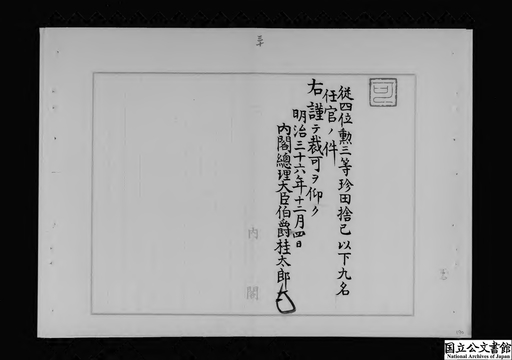 従四位勲三等珍田捨已以下九名
任官ノ件
右謹テ裁可ヲ仰ク
明治三十六年十二月四日
内閣總理大臣伯爵桂太郎
内閣
国立公文書館
National Archives of Japan